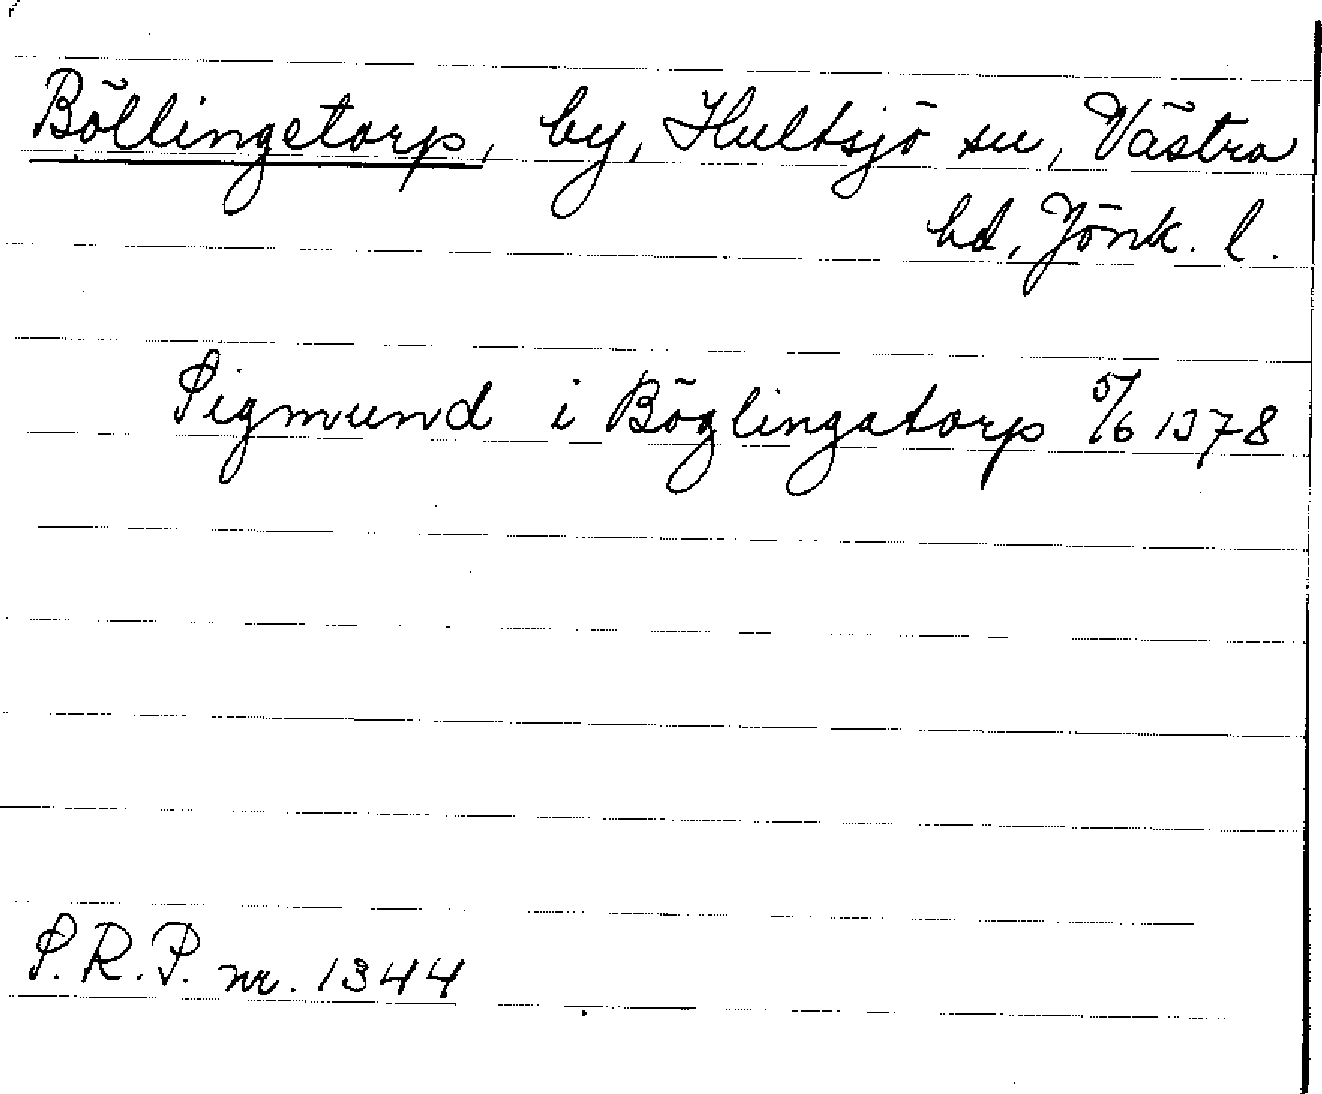 Böllingetorp, by, Hultsjö sn, Västra
hd, Jönk. l.
Sigmund i Böglingatorp 5/6 1378
S.R.P. nr. 1344